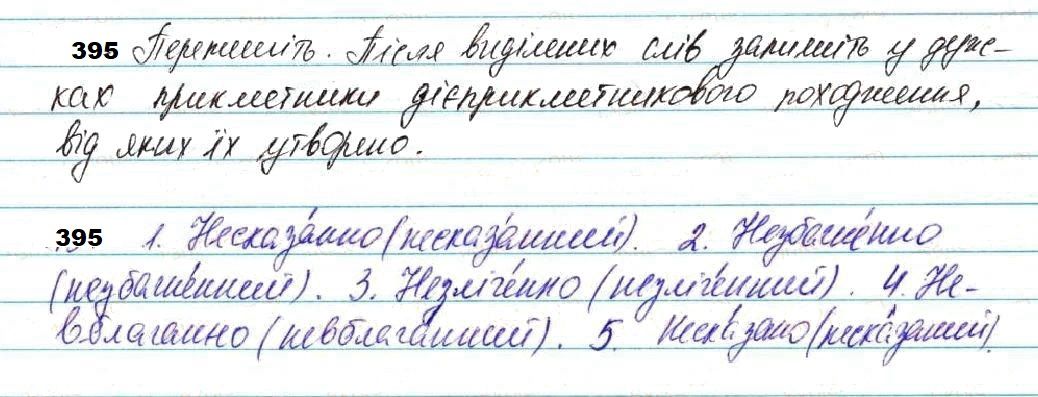 395 Перепишіть. Після виділених слів запишіть у дуж-
ках прикметники дієприкметникового походження,
від яких їх утворено.
395 1. Несказа́нно (несказа́нний). 2. Незбагне́нно
(незбагне́нний). 3. Незліче́нно (незліче́нний). 4. Не-
вблаганно (невблага́нний). 5. Неска́зано (неска́заний).